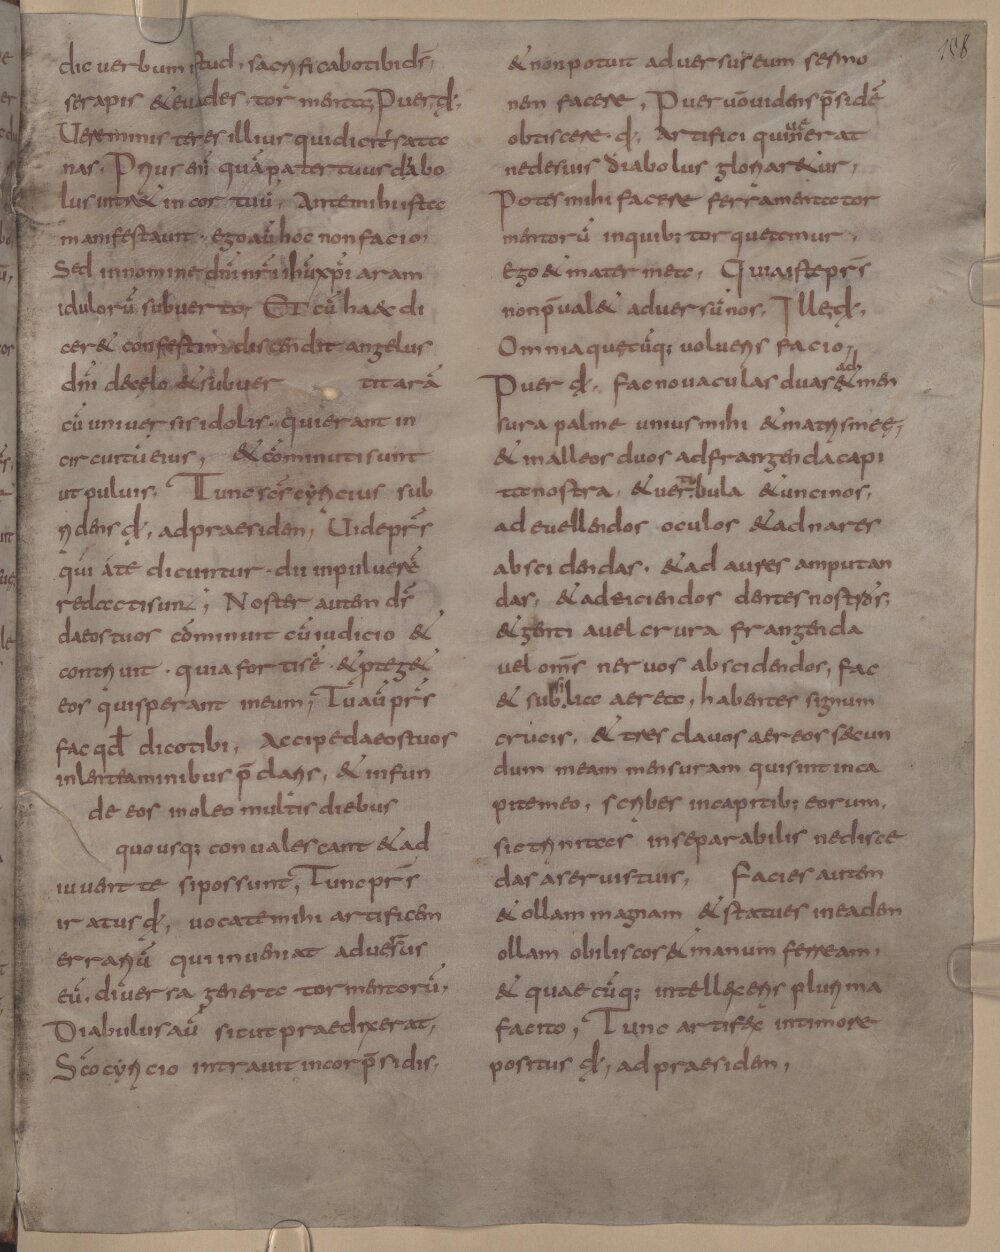 158
dic uerbum istud, sacrificabo tibi d̄s,
serapis & euades tormenta; Puer d̄.
Uere minus teres illius qui dicit seatte
nas. Prius eni quā pater tuus diabo
lus intr& in cor tuū, Ante mihi ista
manifestauit. ego aū hoc non facio.
Sed in nomine dn̄i nr̄i ihū xp̄i aram
idulorū subuerto, Et cū haec di
cer& confestim discendit angelus
dn̄i de celo & subuer tit arā
cū uniuersis idolis. qui erant in
circuitu eius, & cōminuti sunt
ut puluis. Tunc sc̄s cyricius sub
ridens d̄, ad praesidem, Uide pr̄s
qui a te dicuntur dii in puluerē
redacti sunt; Noster autem d̄s
daeos tuos cōminuit cū iudicio &
conterit. quia fortis ē & p̄teg&
eos qui sperant in eum; Tu aū pr̄s
fac qd̄ dico tibi, Accipe daeos tuos
in lenteaminibus p̄claris, & infun
de eos in oleo multis diebus
quousq; conualescant & ad
iuuent te si possunt, Tunc pr̄s
iratus d̄, uocate mihi artificem
errariū qui inueniat aduersus
eū. diuersa genera tormentorū,
Diabulus aū sicut praedixerat,
Sc̄o cyricio intrauit in cor p̄sidis.
& non potuit aduersus eum sermo
nem facere, Puer uō uidens p̄sidē
obtiscere d̄. Artifici qui uenerat
ne desuis diabolus gloriar&ur,
Potes mihi facere ferramenta tor
mentorū in quib; torquetemur,
ego & mater mea, Quia iste pr̄s
non p̄ual& aduersū nos. Ille d̄,
Omnia quecūq; uolueris facio,
Puer d̄. fac nouaculas duas & ad men
sura palme unius mihi & matris meę,
& malleos duos ad frangenda capi
ta nostra, & uerubula & uncinos,
ad euellendos oculos & ad nares
abscidendas. & ad aures amputan
das, & ad eiciendos dentes nostros,
& genti auel crura frangenda
uel om̄s neruos abscidendos, fac
& subilica aerea, habentes signum
crucis. & tres clauos aereos secun
dum meam mensuram qui sint in ca
pite meo, scribes in capitib; eorum.
sic trinitas inseparabilis ne disce
das a seruis tuis, Facies autem
& ollam magnam & statues in eadem
ollam obiliscos & manum ferream,
& quaecūq; intellexeris plurima
facito, Tunc artifex in timore
positus d̄, ad praesidem,